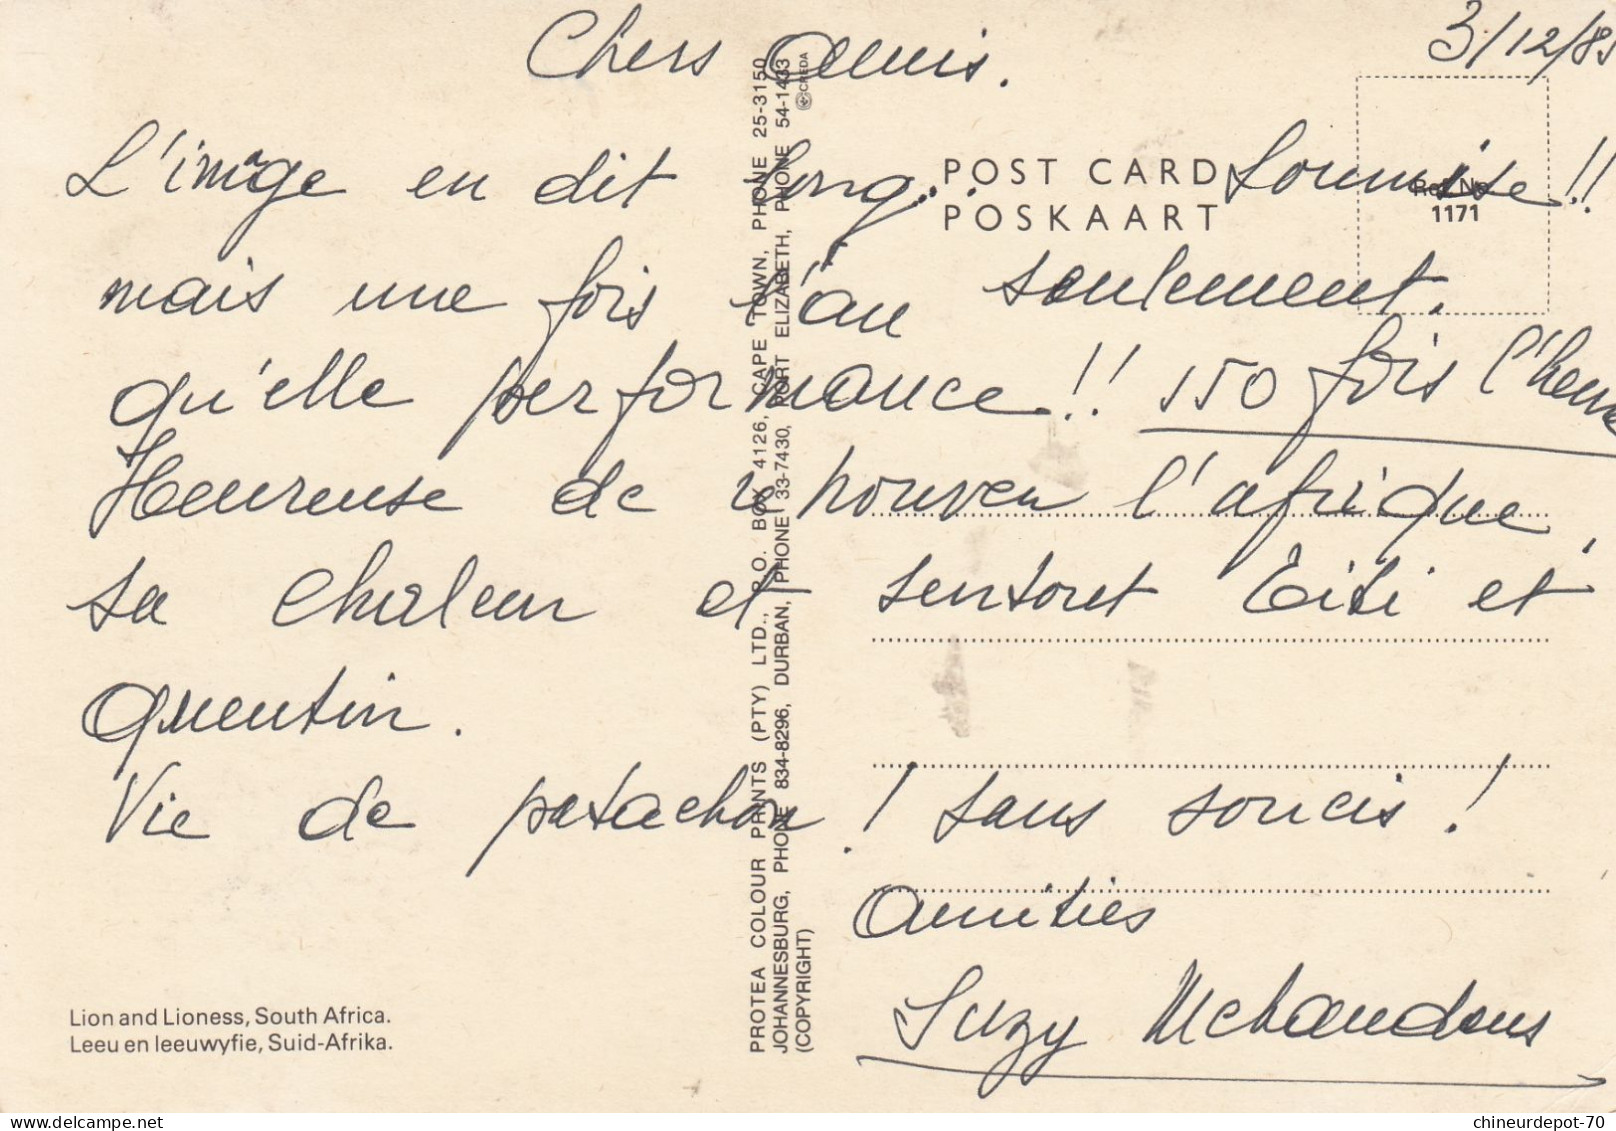 3/12/85
Chers Amis.
L'image en dit long... Soumise !!
mais une fois l'an seulement.
qu'elle performance !! 150 fois l'heure
Heureuse de retrouver l'afrique,
sa chaleur et surtout Titi et
Quentin.
Vie de patachon ! sans soucis !
Amitiés
Suzy
POST CARD
POSKAART
Ref. No.
1171
PROTEA COLOUR PRINTS (PTY) LTD., P.O. BOX 4126, CAPE TOWN, PHONE 25-3150
JOHANNESBURG, PHONE 834-8296, DURBAN, PHONE 33-7430, PORT ELIZABETH, PHONE 54-1433
(COPYRIGHT)
CREDA
Lion and Lioness, South Africa.
Leeu en leeuwyfie, Suid-Afrika.
chineurdepot-70